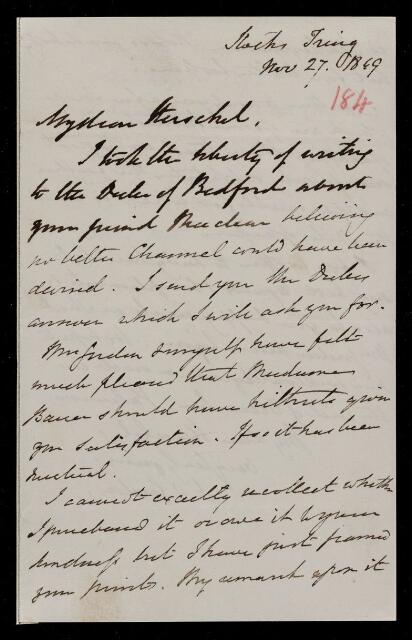 Stocks Tring
Nov 27. 1849
184
My dear Herschel,
I took the liberty of writing
to the Duke of Bedford about
your friend Maclear believing
no better Channel could have been
devised. I send you the Dukes
answer which I will ask you for.
Mrs Gordon & myself have felt
much pleased that Madame
Bauer should have hitherto given
you satisfaction. If so it has been
mutual.
I cannot exactly recollect whether
I purchased it or owe it to your
kindness but I have just framed
your prints. My remark upon it